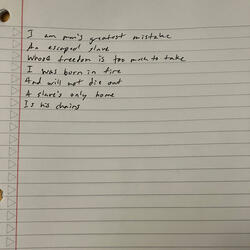 I am man's greatest mistake
An escaped slave
Whose freedom is too much to take
I was born in fire
And will not die out
A slave's only home
Is his chains